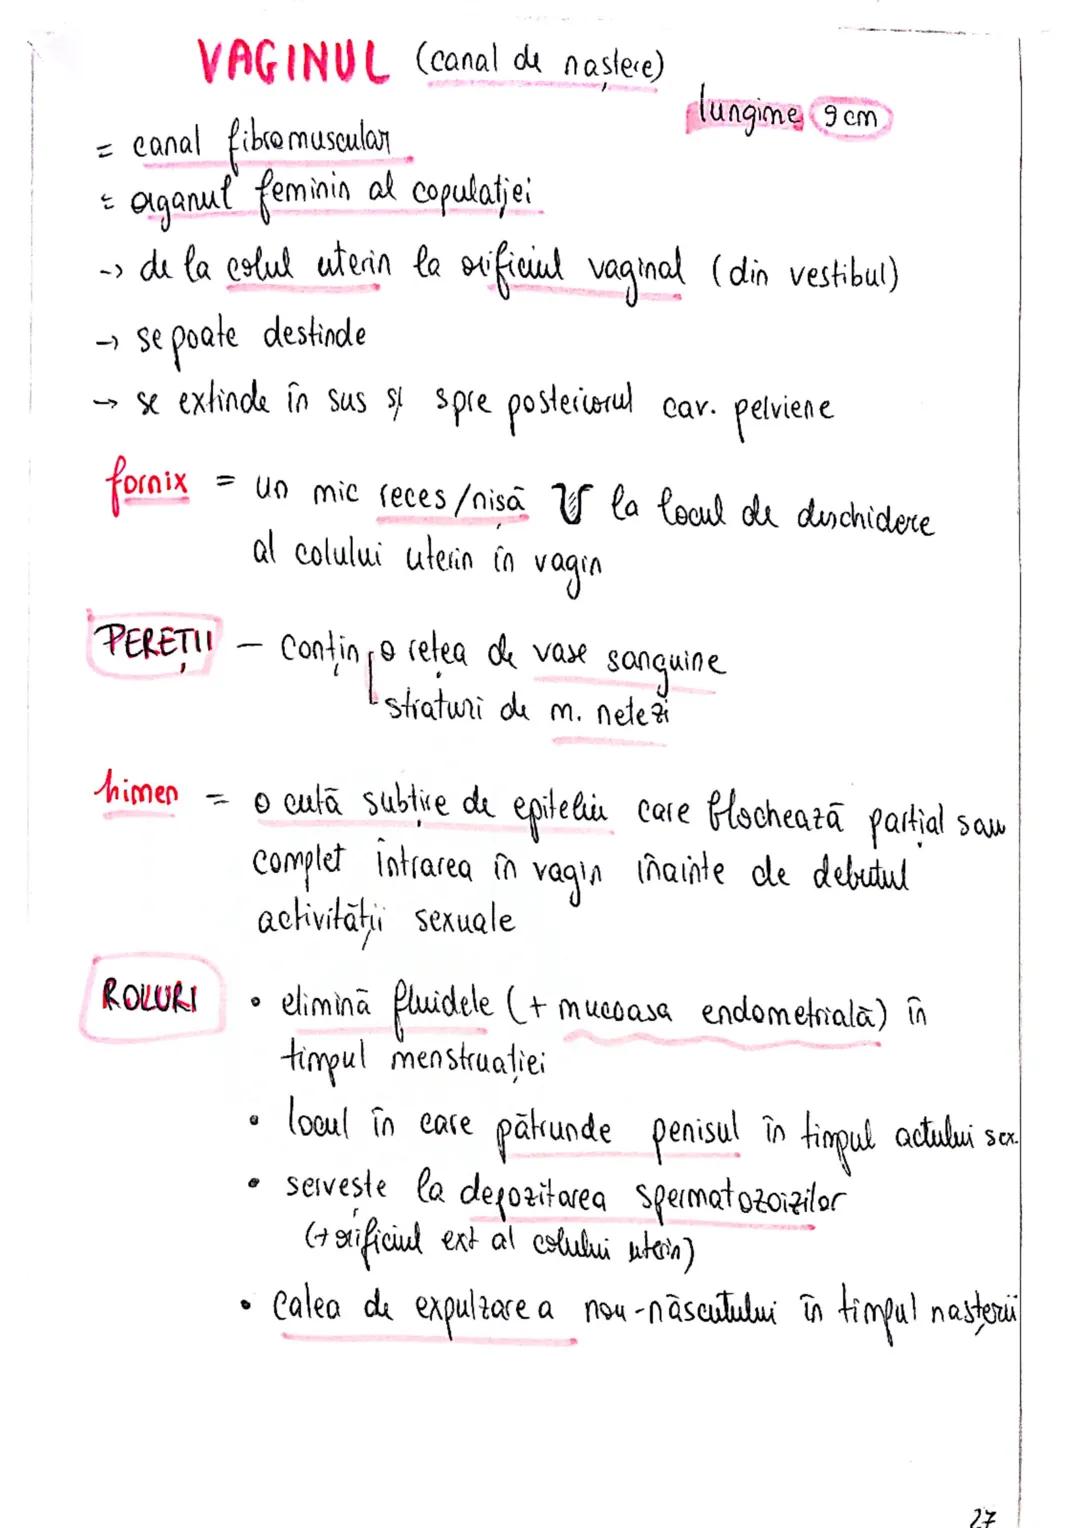 VAGINUL (canal de naștere)
lungime 9 cm
= canal fibromuscular
= organul feminin al copulației
-> de la colul uterin la orificiul vaginal (din vestibul)
-> se poate destinde
-> se extinde în sus și spre posteriorul cav. pelviene
fornix = un mic reces/nișă la locul de deschidere
al colului uterin în vagin
PEREȚII - conțin o rețea de vase sanguine
straturi de m. netezi
himen = o cută subțire de epiteliu care blochează parțial sau
complet intrarea în vagin înainte de debutul
activității sexuale
ROLURI • elimină fluidele (+ mucoasa endometrială) în
timpul menstruației
• locul în care pătrunde penisul în timpul actului sex.
• servește la depozitarea spermatozoizilor
(+ orificiul ext al colului uterin)
• calea de expulzare a nou-născutului în timpul nașterii
27